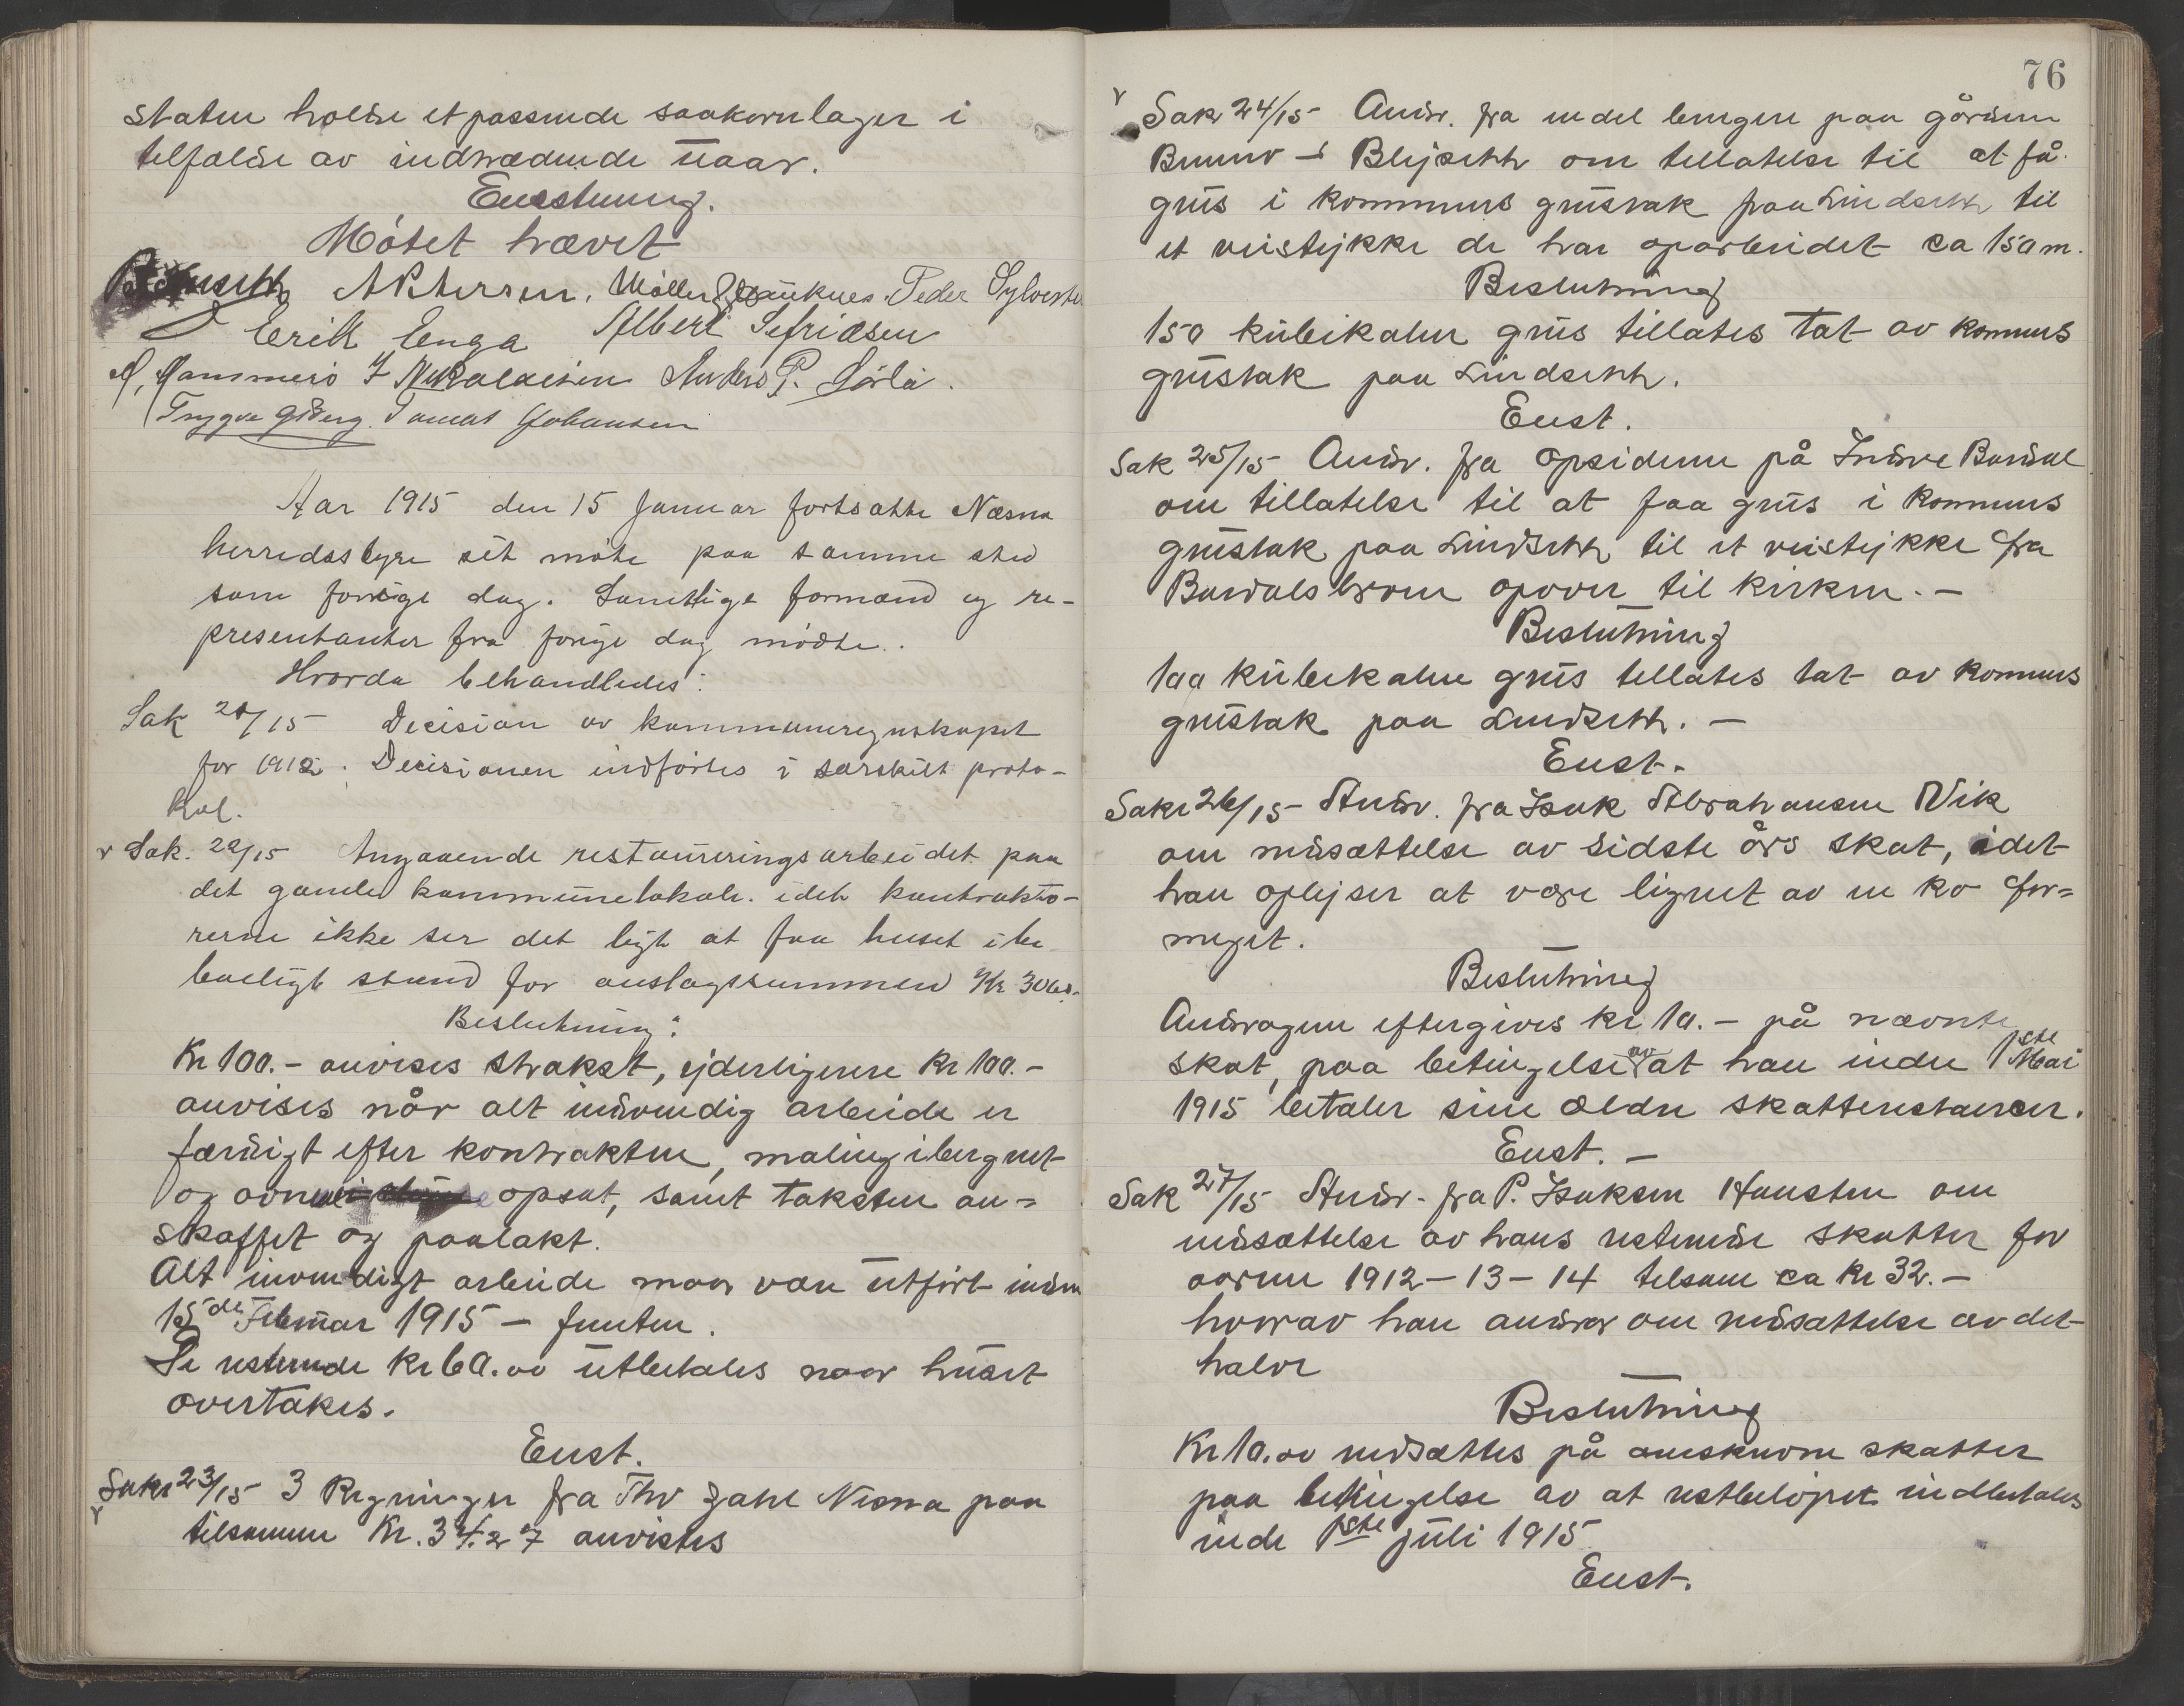 staten holde et passende saakornlager i
tilfælde av indtrædende uaar.
Enstemmig.
Møtet hævet
A Petersen. Møller Peder Sylvester
Erik Enga Albert Sefridsen
J Nikolaisen Anders P.
Trygve Johansen
Aar 1915 den 15 Januar fortsatte Næsna
herredsstyre sit møte paa samme sted
som forrige dag. Samtlige formænd og re-
presentanter fra forrige dag mødte.
Hvorda behandledes:
Sak 21/15 Decision av kommuneregnskapet
for 1912. Decisionen indførtes i særskilt proto-
kol.
v Sak. 22/15 Angaaende restaureringsarbeidet paa
det gamle kommunelokale. idet kontraktø-
rerne ikke ser det let at faa huset i be
boeligt stand for anslagssummen Kr 306
Beslutning:
Kr 100.- anvises strakst, yderligerere Kr 100.-
anvises når alt indvendig arbeide er
færdigt efter kontrakten, maling iberegnet
og ovne opsat, samt taksten an=
skaffet og paalakt.
Alt invendigt arbeide maa være utført inden
15de Februar 1915 -
De resterende Kr 60.00 utbetales naar huset
overtakes.
Enst.
v Sak 23/15 3 Regninger fra Thv Zahl Nesna paa
tilsammen Kr. 34.27 anvistes
76
v Sak 24/15 Andr. fra endel brugere paa gårdene
om tillatelse til at få
grus i kommunens grustak paa Lindseth til
et veistykke de har oparbeidet ca 150 m.
Beslutning
150 kubikalen grus tillates tat av komunens
grustak paa Lindseth.
Enst.
Sak 25/15 Andr. fra opsidderne på Indre Bardal
om tillatelse til at faa grus i komunens
grustak paa Lindseth til et veistykke fra
Bardalsbroen opover til kirken. -
Beslutning
100 kubikalen grus tillates tat av komunens
grustak paa Lindseth. -
Enst.
Sak 26/15 Andr. fra Isak Abrahamsen Vik
om nedsættelse av sidste års skat, idet
han oplyser at være lignet av en ko for=
meget.
Beslutning
Andrageren eftergives kr 10.- på nævnte
skat, paa betingelse av at han inden 1ste Mai
1915 betaler sine ældre skatterestancer.
Enst. -
Sak 27/15 Andr. fra P. Isaksen Hausten om
nedsættelse av hans resterende skatter for
aarene 1912-13-14 tilsam ca Kr 32.-
hvorav han andrar om nedsættelse av det
halve
Beslutning
Kr 10.00 nedsættes på omskrevne skatter
paa betingelse av at restbeløpet indbetales
inde 1ste juli 1915
Enst.